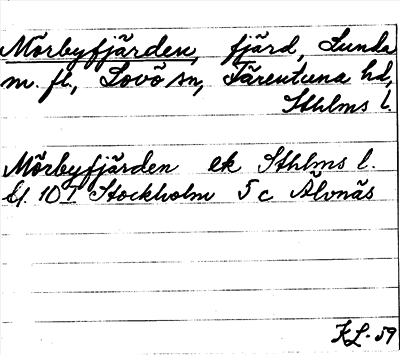 Mörbyfjärden, fjärd, Lunda
m. fl., Lovö sn, Färentuna hd,
Sthlms l.
Mörbyfjärden ek Sthlms l.
bl. 107 Stockholm 5 c Älvnäs
KL-59